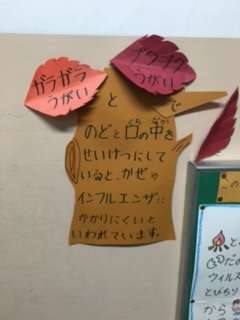 ガラガラ
うがい
ブクブク
うがい
と で
のどと口の中を
くち なか
せいけつにして
いると、かぜや
インフルエンザに
かかりにくいと
いわれています。
この
と
だ
ウィルス
とびちり
から